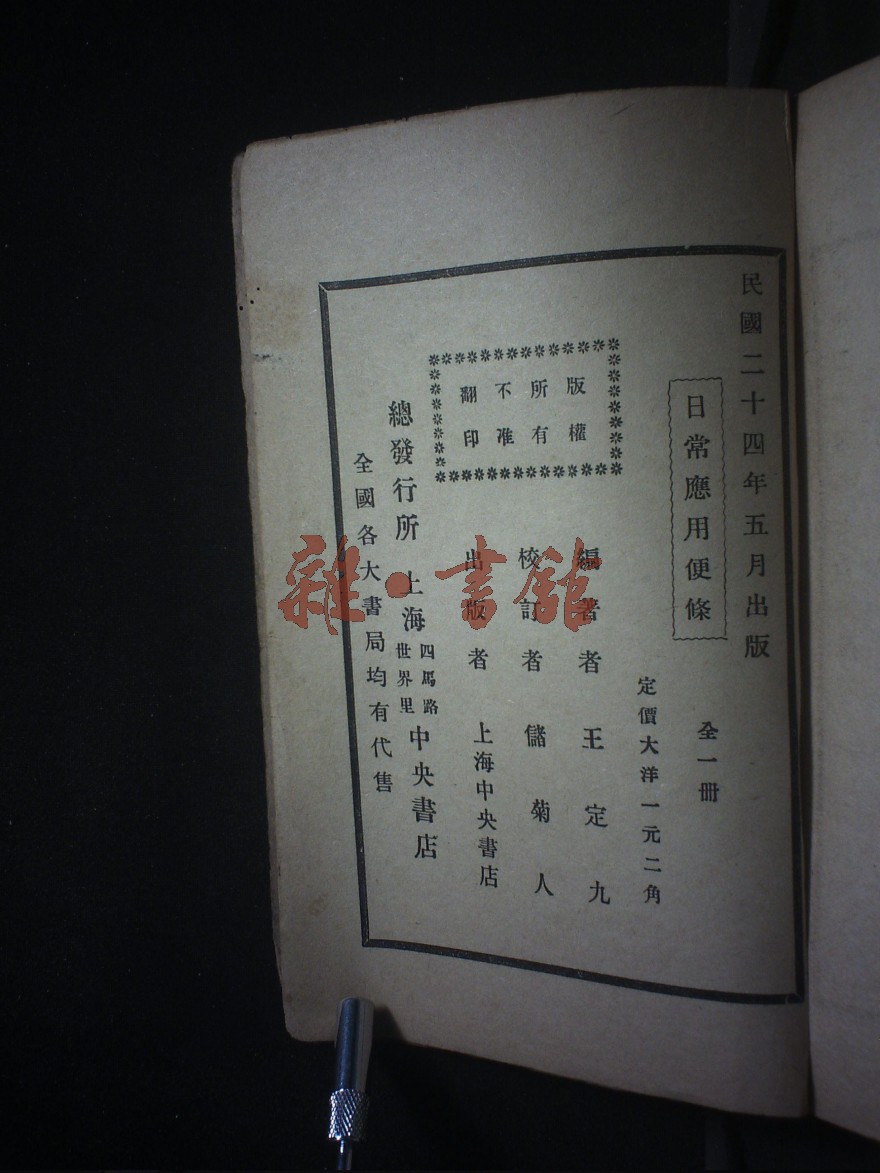 民國二十四年五月出版
日常應用便條
全一冊
定價大洋一元二角
版權
所有
不准
翻印
編著者 王定九
校訂者 儲菊人
出版者 上海中央書店
總發行所 上海 四馬路 世界里 中央書店
全國各大書局均有代售
雜·書館